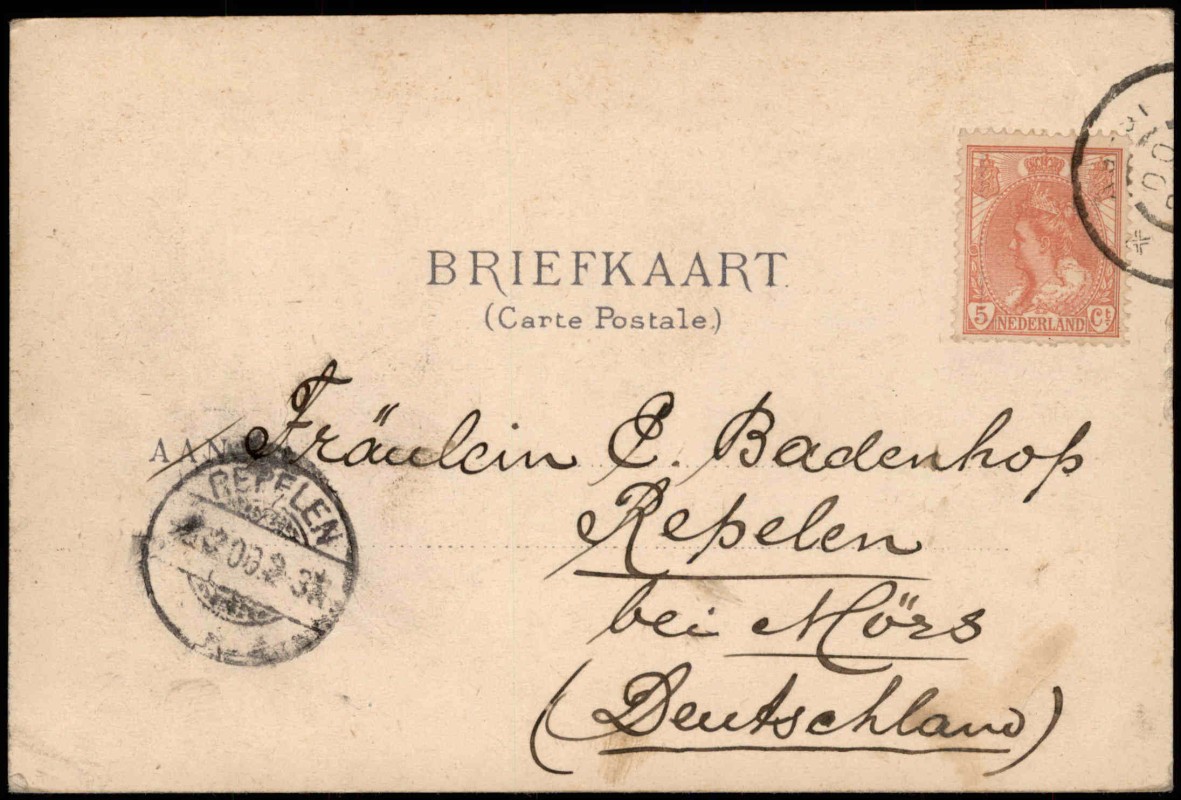 BRIEFKAART.
(Carte Postale.)
5 NEDERLAND Ct
AAN Fräulein E. Badenhop
Repelen
bei Mörs
(Deutschland)
REPELEN